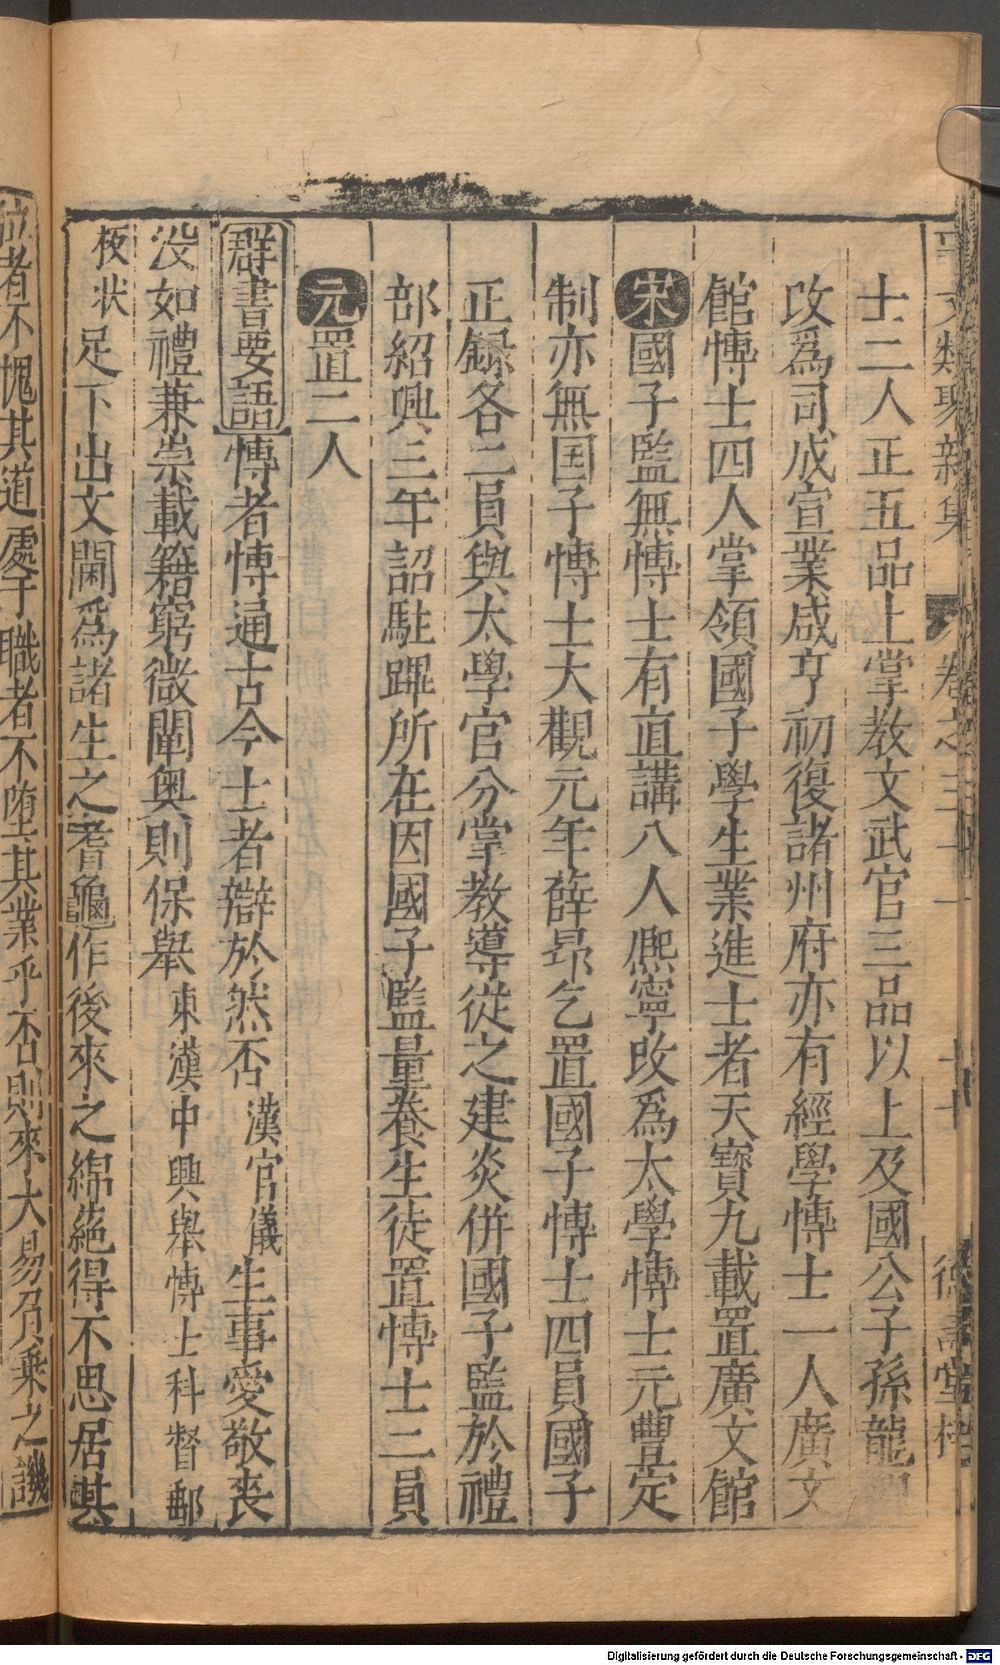 事文類聚新集 卷之三十一 十七 德壽堂梓
士二人正五品上掌教文武官三品以上及國公子孫龍朔
改爲司成宣業咸亨初復諸州府亦有經學愽士一人廣文
館愽士四人掌領國子學生業進士者天寶九載置廣文館
宋國子監無愽士有直講八人熈寧改爲太學愽士元豐定
制亦無国子愽士大觀元年薛昻乞置國子愽士四員國子
正録各二員與太學官分掌教導從之建炎併國子監於禮
部紹興三年詔駐蹕所在因國子監量養生徒置愽士二員
元置二人
群書要語愽者愽通古今士者辯於然否漢官儀生事愛敬喪
没如禮兼崇載籍窮微闡奥則保舉東漢中興舉愽士科督郵
板状足下出文閫爲諸生之蓍龜作後來之綿蕝得不思居其
位者不愧其道處于職者不堕其業乎否則來大易負乗之譏
Digitalisierung gefördert durch die Deutsche Forschungsgemeinschaft - DFG